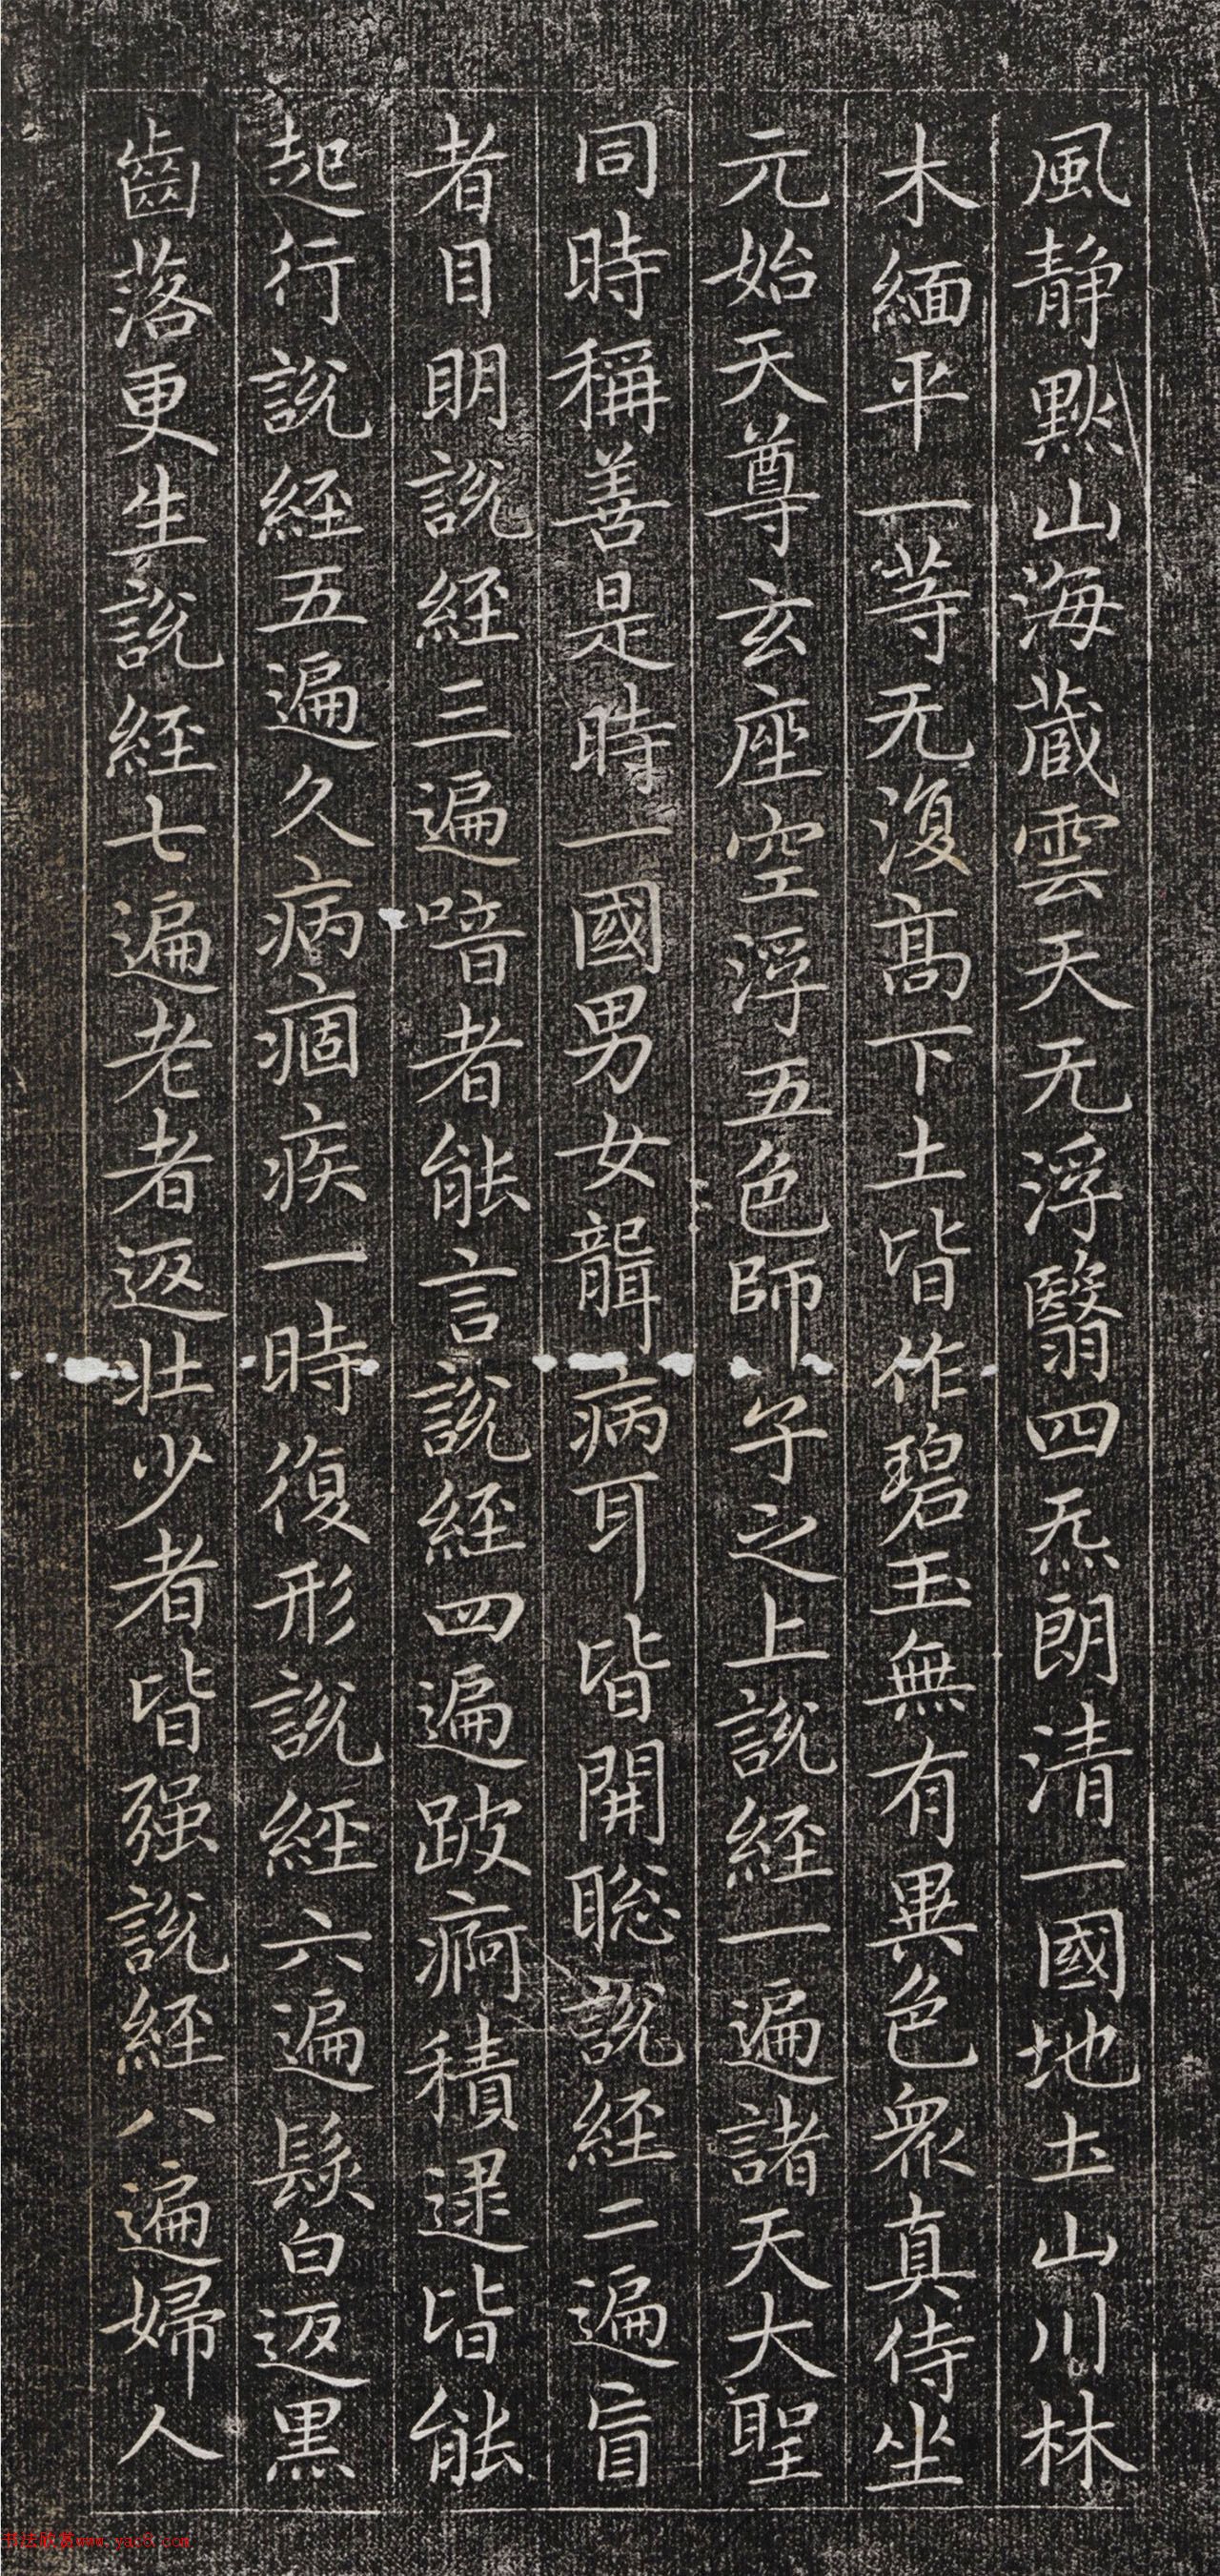 風静默山海蔵雲天无浮翳四炁朗清一國地土山川林
木緬平一等无復髙下土皆作碧玉無有異色衆真侍坐
元始天尊玄座空浮五色師子之上說經一遍諸天大聖
同時稱善是時一國男女聾病耳皆開聡說經二遍盲
者目明說經三遍喑者能言說經四遍跛痾積逮皆能
起行說經五遍久病痼疾一時復形說經六遍髮白返黒
齒落更生說經七遍老者返壮少者皆强說經八遍婦人
书法欣赏www.yac8.com